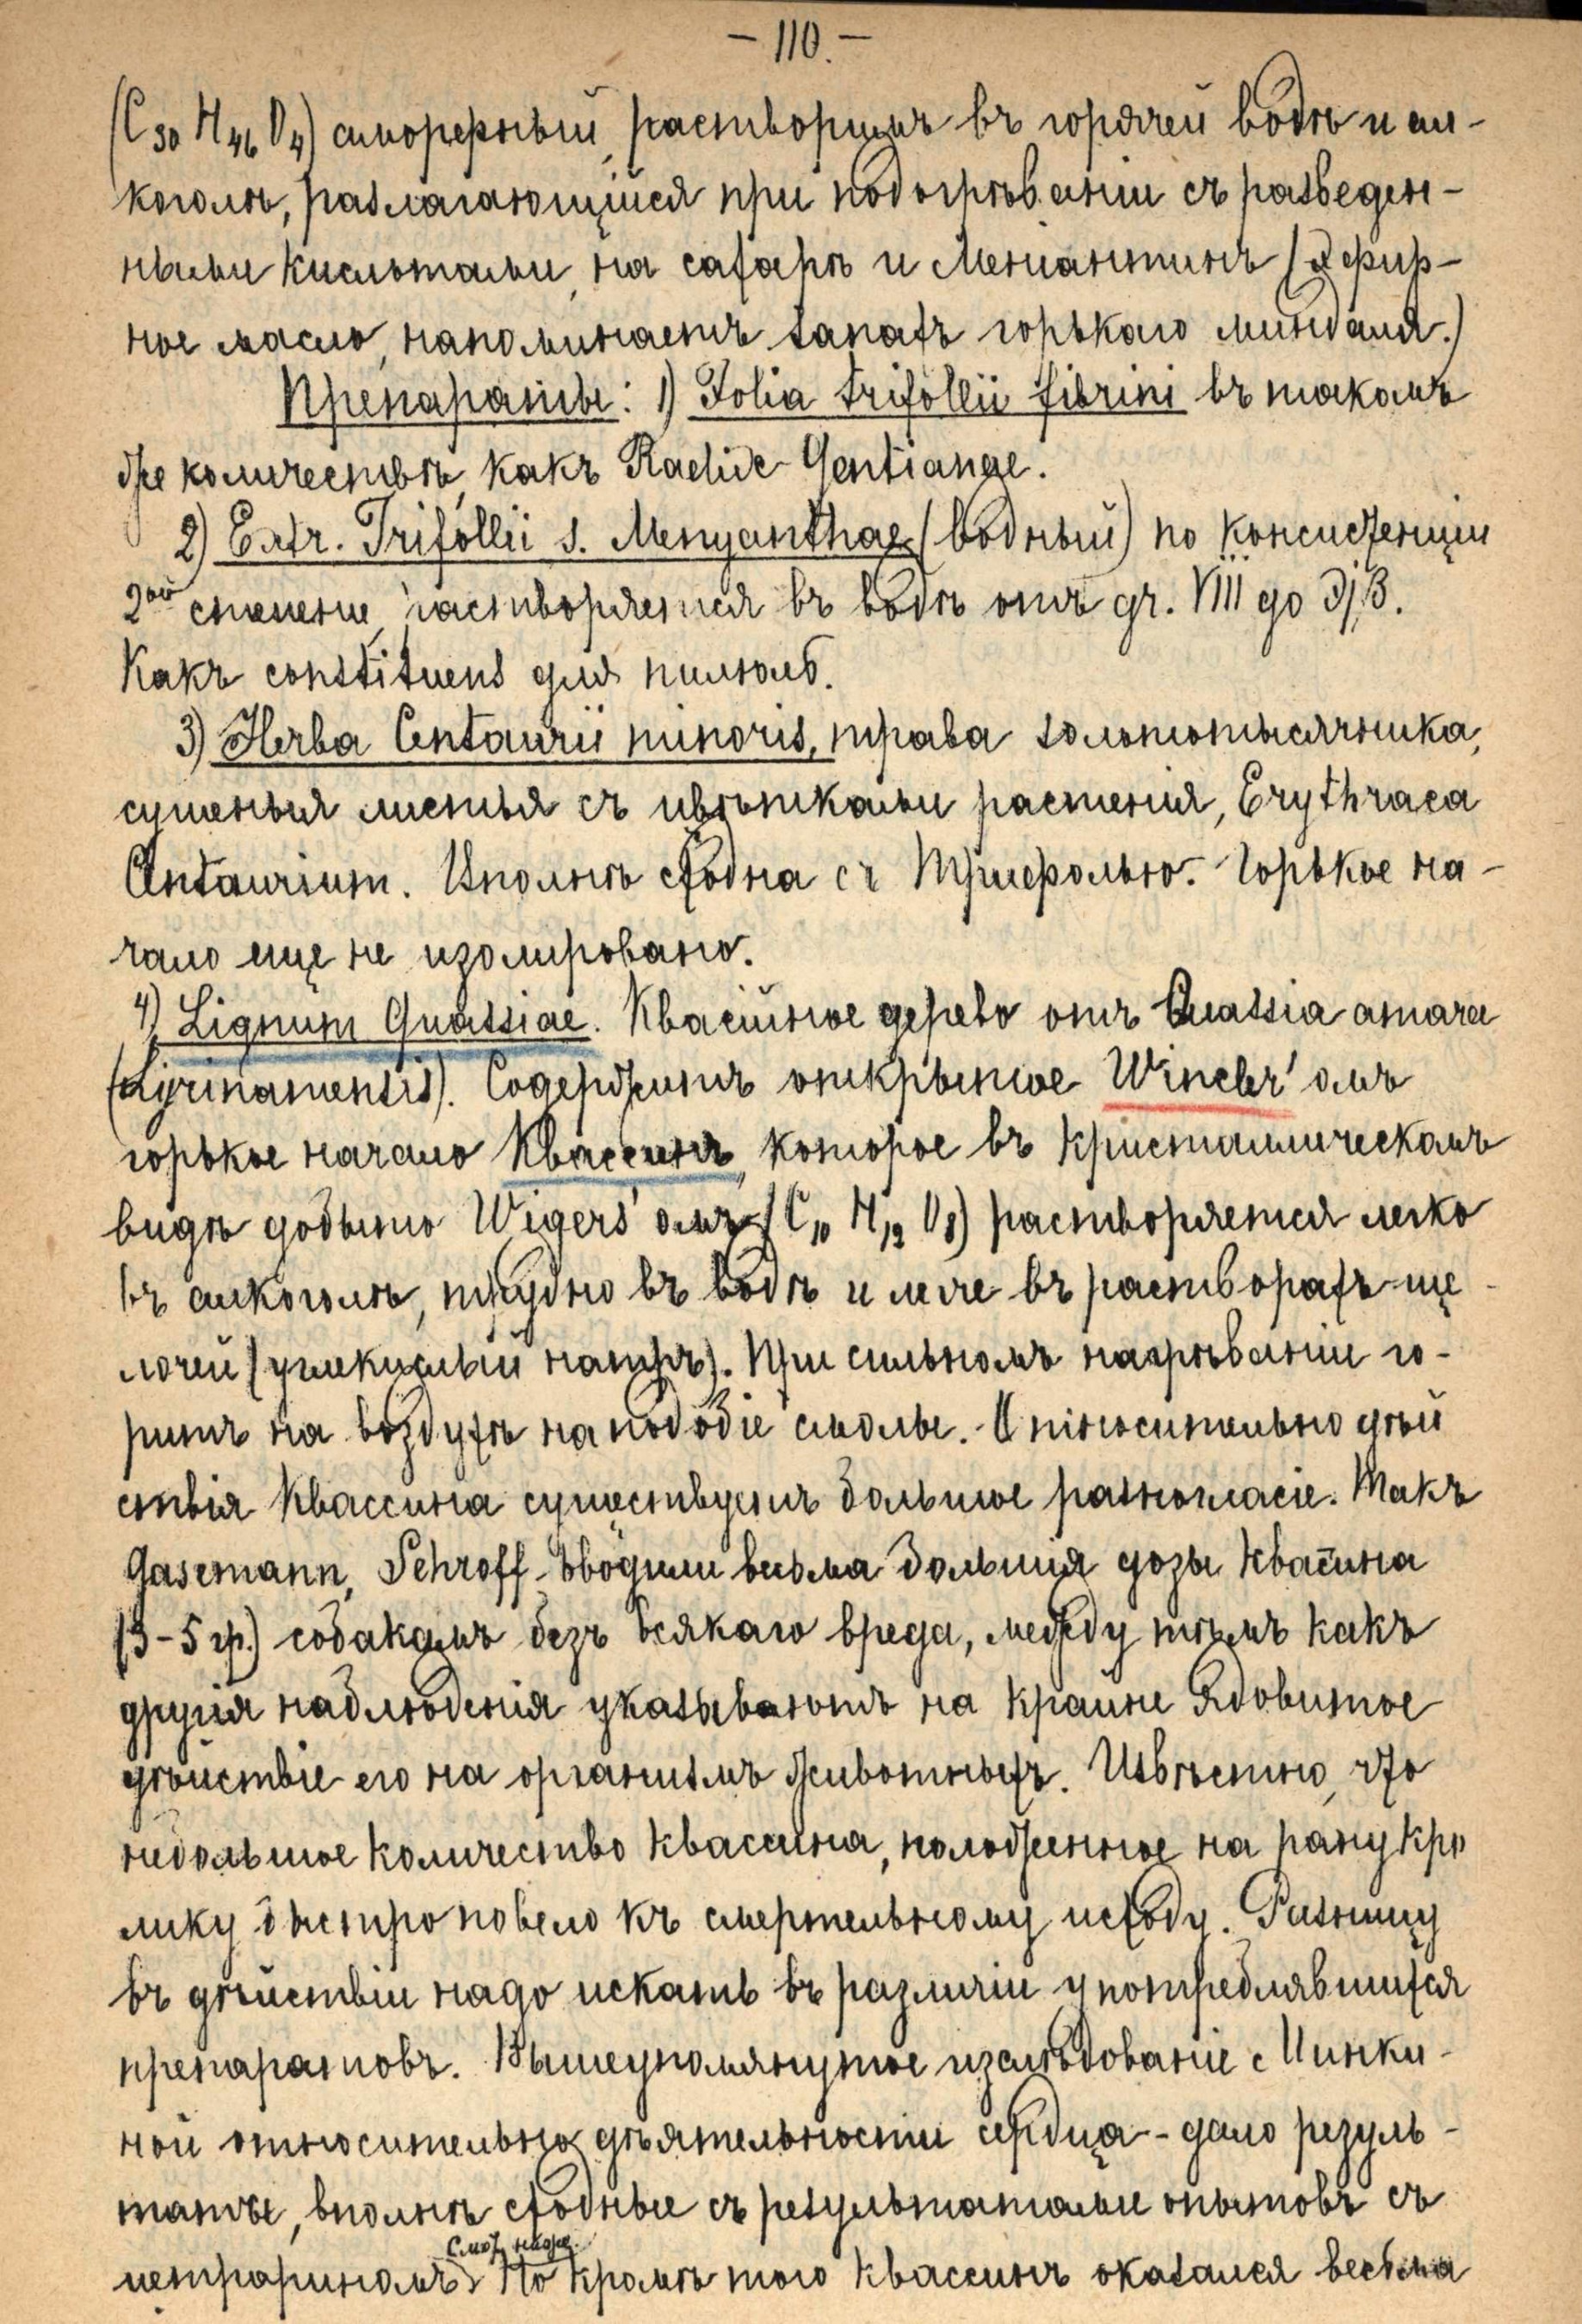 – 110. –
(C30 H46 O4) аморфный, растворимъ въ горячей водѣ и ал-
коголѣ, разлагающійся при подогрѣваніи съ разведен-
ными кислотами, на сахаръ и Меніантинъ (эфир-
ное масло, напоминаетъ запахъ горькаго миндаля.)
Препараты: 1) Folia trifollii fibrini въ такомъ
же количествѣ, какъ Radix Gentianae.
2) Extr. Trifollii s. Menyanthae (водный) по консистенціи
2ой степени, растворяется въ водѣ отъ gr. VIII до Эjβ.
Какъ constituens для пилюль.
3) Herba Centaurii minoris, трава золототысячника,
сушеныя листья съ цвѣтками растенія, Erythraea
Centaurium. Вполнѣ сходна съ Трифолью. Горькое на-
чало еще не изолировано.
4) Lignum Quassiae. Квассійное дерево отъ Quassia amara
(Syrinamensis). Содержитъ открытое Wincler'омъ
горькое начало Квассинъ, которое въ кристаллическомъ
видѣ добыто Wigers'омъ (C10 H12 O3) растворяется легко
въ алкоголѣ, трудно въ водѣ и легче въ растворахъ ще-
лочей (углекислый натръ). При сильномъ нагрѣваніи го-
ритъ на воздухѣ наподобіе смолы. Относительно дѣй
ствія Квассина существуетъ большое разногласіе. Такъ
Gasemann, Schroff вводили весьма большія дозы Квасина
(3-5 гр.) собакамъ безъ всякаго вреда, между тѣмъ какъ
другія наблюденія указываютъ на крайне ядовитое
дѣйствіе его на организмъ животныхъ. Извѣстно, что
небольшое количество квассина, положенное на рану кро
лику быстро повело къ смертельному исходу. Разницу
въ дѣйствіи надо искать въ различіи употреблявшихся
препаратовъ. Вышеупомянутое изслѣдованіе
ной относительно дѣятельности сердца - дало резуль-
таты, вполнѣ сходные съ результатами опытовъ съ
цетрариномъ. Но кромѣ того квассинъ оказался весьма